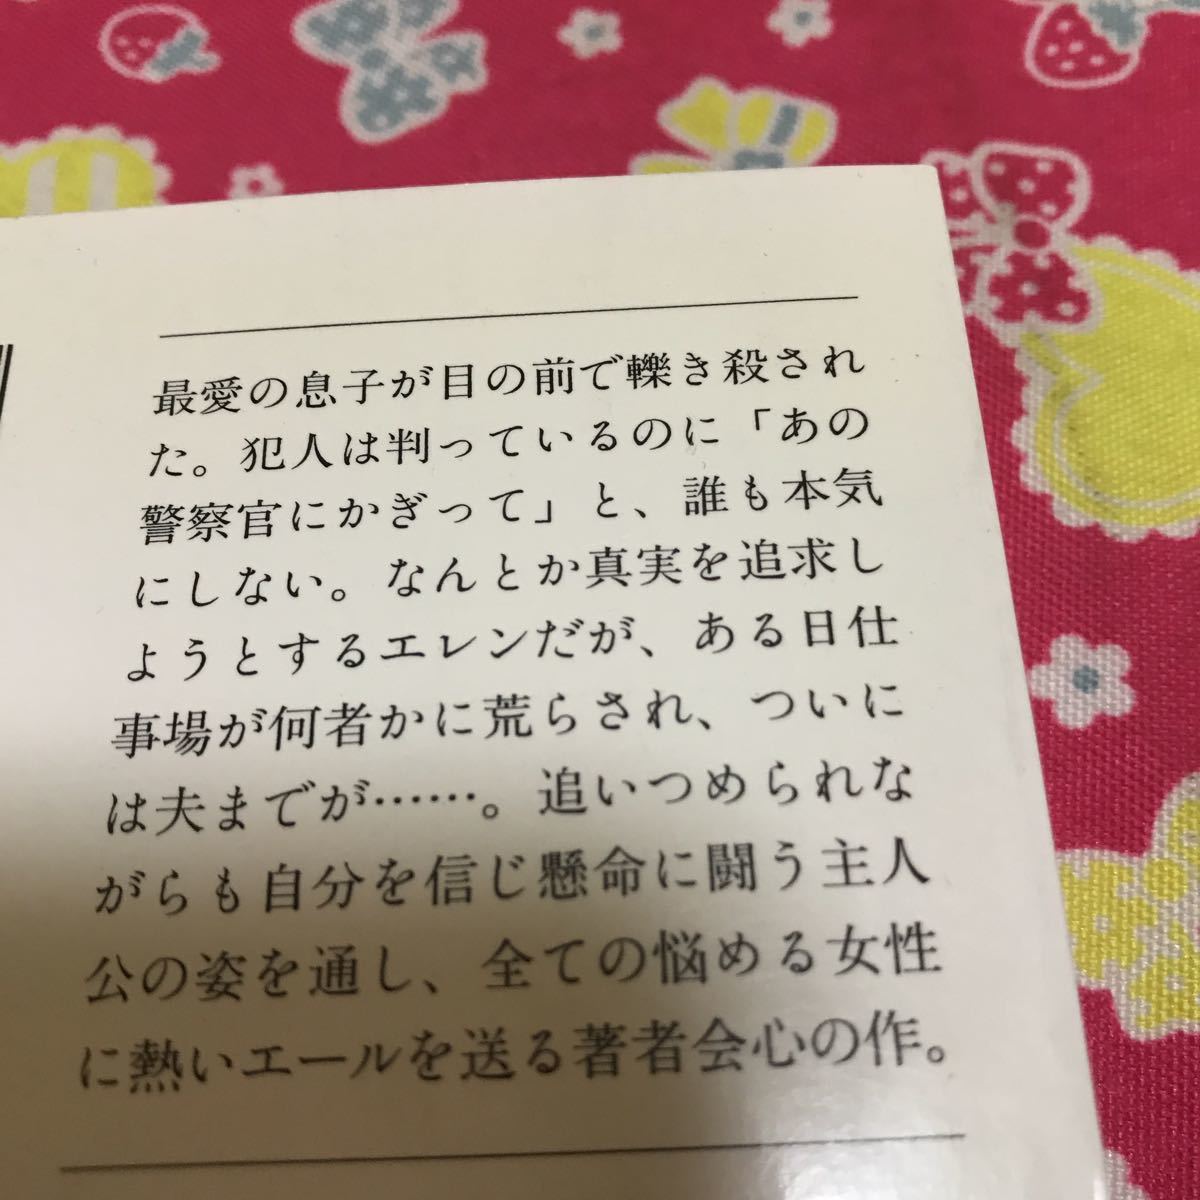 最愛の息子が目の前で轢き殺され
た。犯人は判っているのに「あの
警察官にかぎって」と、誰も本気
にしない。なんとか真実を追求し
ようとするエレンだが、ある日仕
事場が何者かに荒らされ、ついに
は夫までが……。追いつめられな
がらも自分を信じ懸命に闘う主人
公の姿を通し、全ての悩める女性
に熱いエールを送る著者会心の作。